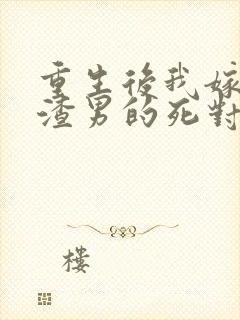 重生後我嫁
渣男的死對
樓